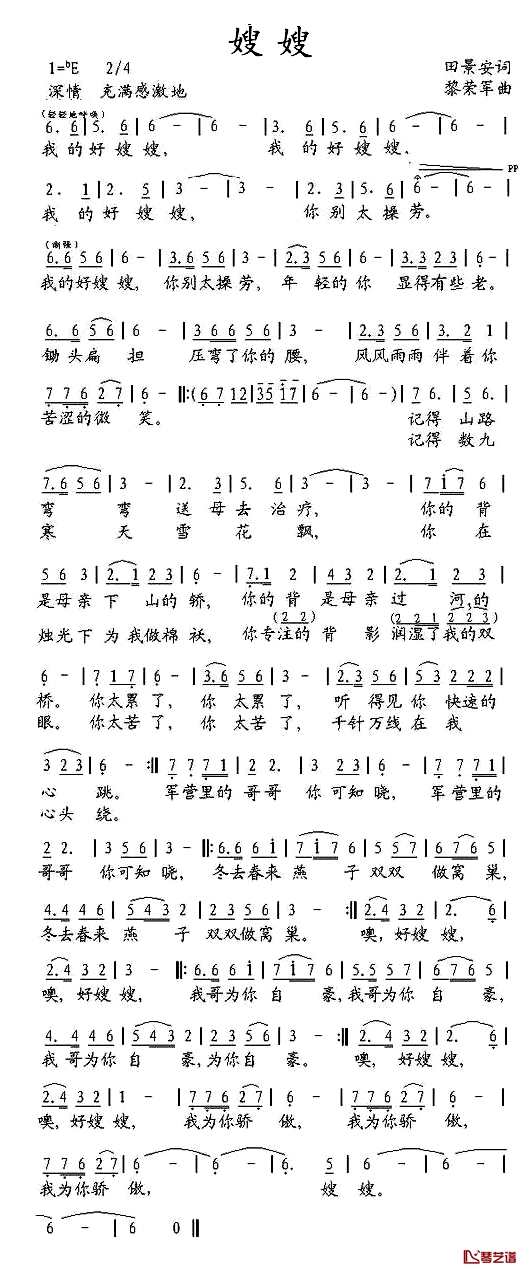 嫂嫂
1=ᵇE 2/4 田景安词
深情 充满感激地 黎荣军曲
(轻轻地呼唤)
6. 6 | 5. 6 | 6 - | 6 - | 3. 6 | 5. 6 | 6 - | 6 - |
我的好嫂嫂, 我的好嫂嫂、
PP
2. 1 | 2. 5 | 3 - | 3 - | 2. 2 | 5. 5 | 6 - | 6 - |
我的好嫂嫂, 你别太操劳。
(渐强)
6. 6 5 6 | 6 - | 3. 6 5 6 | 3 - | 2. 3 2 | 6 - | 3. 3 2 3 | 6 - |
我的好嫂嫂, 你别太操劳, 年轻的你 显得有些老。
6. 6 5 6 | 6 - | 3. 5 5 6 | 3 - | 2. 3 5 | 3. 2 1 |
锄头扁担 压弯了你的腰, 风风雨雨伴着你
7 7 6 2 7 | 6 - ‖: (6 7 1 2 | 3 5 1 7 | 6 - | 6 - ) | 7 6. | 5 6. |
苦涩的微笑。 记得山路
记得数九
7. 6 5 6 | 3 - | 2. 3 | 5. 2 | 3 - | 3 - | 7 1 7 | 6 - |
弯弯送母去治疗, 你的背
寒天雪花飘, 你在
5 6 3 | 2. 1 2 3 | 6 - | 7. 1 2 | 3 2 3 | 2. 1 | 2 2 3 |
是母亲下山的轿, 你的背是母亲过河的
(2 2) (2 2 1 2 2 3)
烛光下为我做棉袄, 你专注的背影润湿了我的双
6 - | 7 1 7 | 6 - | 3. 6 5 6 | 3 - | 2. 3 5 6 | 3 2 2 2 |
桥。 你太累了, 你太累了, 听得见你快速的
眼。 你太苦了, 你太苦了, 千针万线在我
3 2 3 | 6 - :‖ 7 7 7 1 | 2 2. | 3 5 6 | 3 - | 7 7 7 1 |
心跳。 军营里的哥哥你可知晓, 军营里的
心头绕。
2 2. | 3 5 6 | 3 - ‖: 6. 6 6 1 | 7 1 7 6 | 5 6 7 | 6 7 5 |
哥哥你可知晓, 冬去春来燕子双双做窝巢,
2. 4 4 6 | 5 4 3 | 2 3 5 6 | 3 - :‖ 2. 4 3 2 | 2. 6 |
冬去春来燕子双双做窝巢。 噢,好嫂嫂,
2. 4 3 2 | 3 - ‖: 6. 6 6 1 | 7 1 7 6 | 5. 5 5 7 | 6 7 6 5 |
噢,好嫂嫂, 我哥为你自豪,我哥为你自豪,
4. 4 4 6 | 5 4 3 2 | 2 5 6 | 3 - :‖ 2. 4 3 2 | 2. 6 |
我哥为你自豪,为你自豪。 噢,好嫂嫂,
2. 4 3 2 | 1 - | 7 7 6 2 7 | 6 - | 7 7 6 2 7 | 6 - |
噢,好嫂嫂, 我为你骄傲, 我为你骄傲,
7 7 6 2 7 | 6 - | 6 - | 6 - | 6. 5 | 6 - | 6 - |
我为你骄傲, 嫂嫂。
6 - | 6 0 ‖
琴艺谱